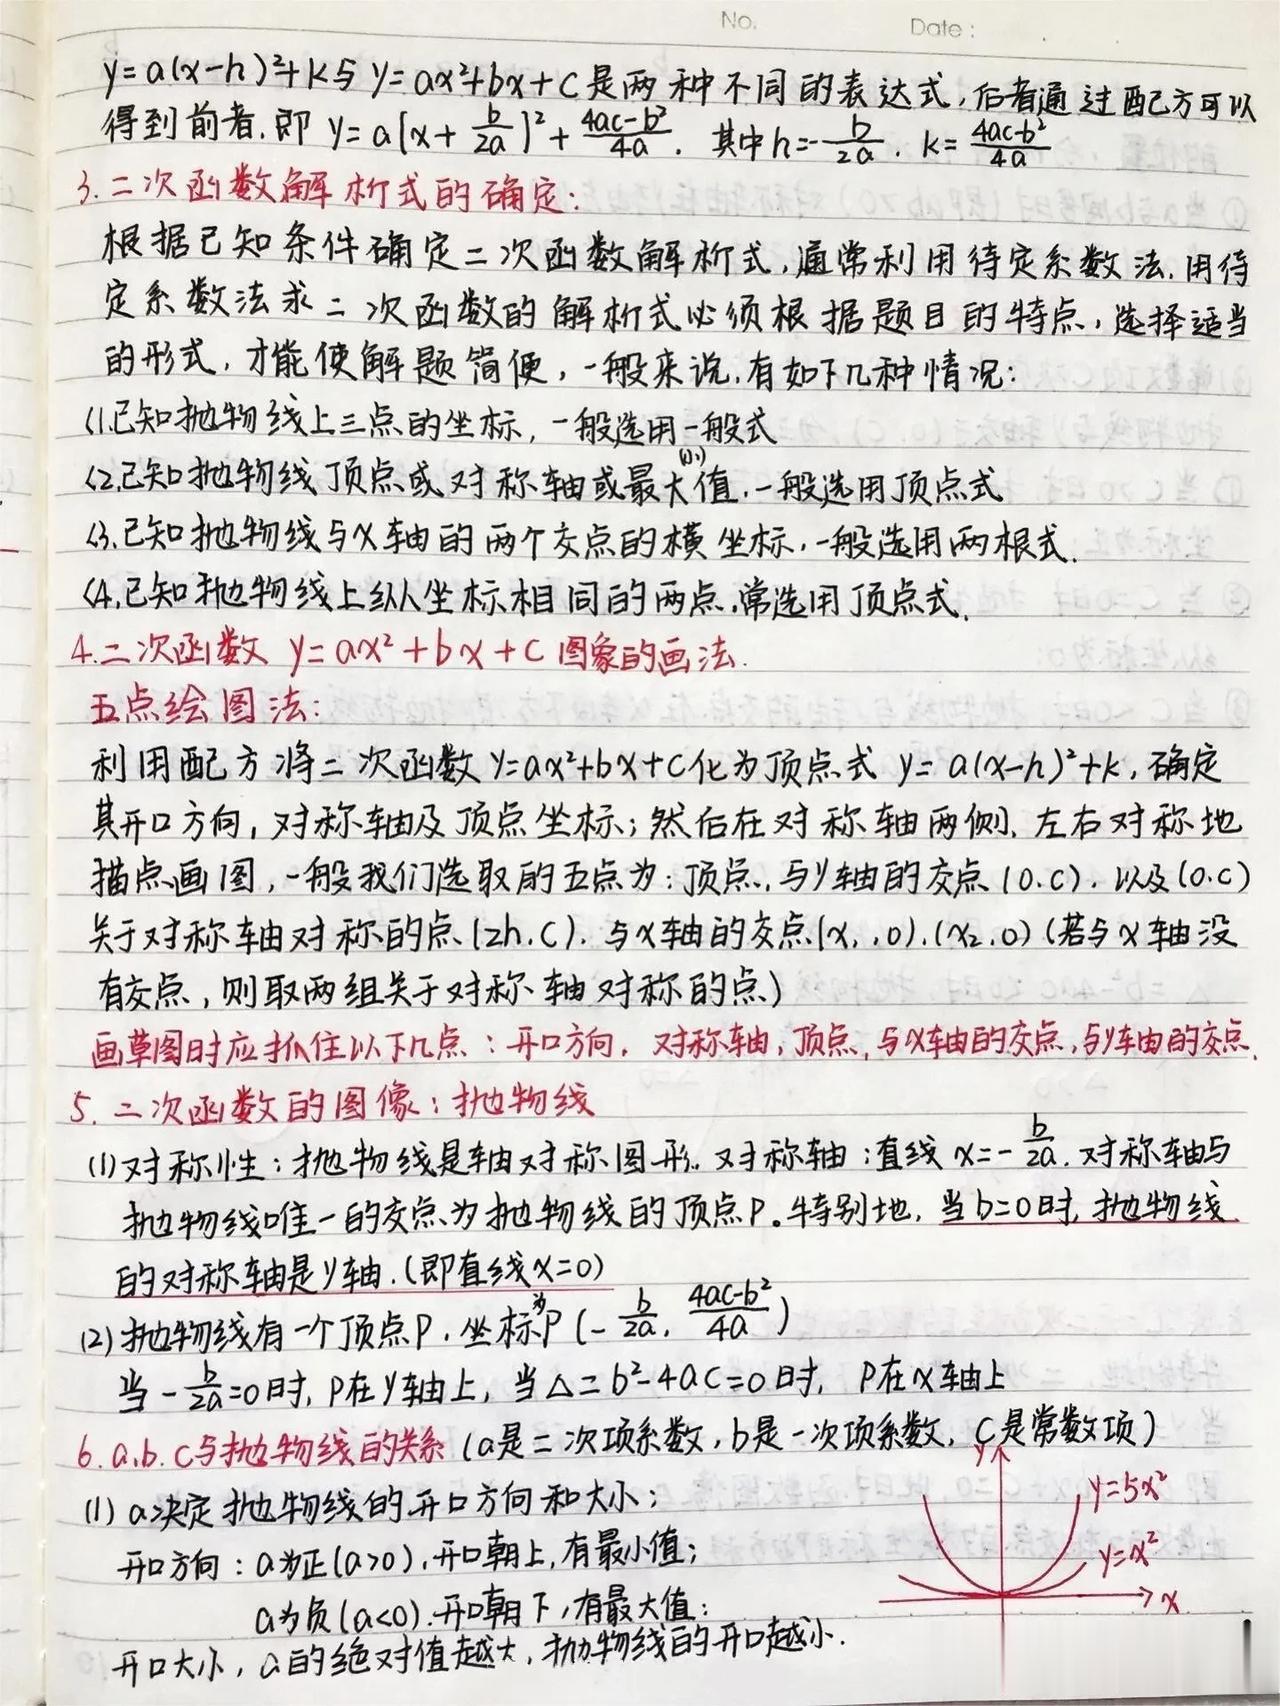 No. Date:
y=a(x-h)²+k与y=ax²+bx+c是两种不同的表达式,后者通过配方可以
得到前者.即 y=a(x+b/2a)²+(4ac-b²)/4a. 其中h=-b/2a. k=(4ac-b²)/4a
3.二次函数解析式的确定:
根据已知条件确定二次函数解析式,通常利用待定系数法.用待
定系数法求二次函数的解析式必须根据题目的特点,选择适当
的形式,才能使解题简便,一般来说.有如下几种情况:
(1.已知抛物线上三点的坐标,一般选用一般式
(2.已知抛物线顶点或对称轴或最大(小)值.一般选用顶点式
(3.已知抛物线与x轴的两个交点的横坐标,一般选用两根式.
(4.已知抛物线上纵坐标相同的两点.常选用顶点式.
4.二次函数 y=ax²+bx+c图象的画法.
五点绘图法:
利用配方将二次函数y=ax²+bx+c化为顶点式 y=a(x-h)²+k,确定
其开口方向,对称轴及顶点坐标;然后在对称轴两侧.左右对称地
描点画图,一般我们选取的五点为:顶点.与y轴的交点(0.c).以及(0.c)
关于对称轴对称的点(2h.c).与x轴的交点(x₁,0).(x₂,0)(若与x轴没
有交点,则取两组关于对称轴对称的点)
画草图时应抓住以下几点:开口方向.对称轴,顶点,与x轴的交点,与y轴的交点.
5.二次函数的图像:抛物线
(1)对称性:抛物线是轴对称图形.对称轴:直线x=-b/2a.对称轴与
抛物线唯一的交点为抛物线的顶点P。特别地.当b=0时,抛物线
的对称轴是y轴.(即直线x=0)
(2)抛物线有一个顶点P.坐标为P(-b/2a, (4ac-b²)/4a)
当-b/2a=0时,P在y轴上,当△=b²-4ac=0时, P在x轴上
6.a.b.c与抛物线的关系(a是二次项系数,b是一次项系数,c是常数项)
(1) a决定抛物线的开口方向和大小:
开口方向:a为正(a>0),开口朝上,有最小值;
a为负(a<0).开口朝下,有最大值:
开口大小,a的绝对值越大,抛物线的开口越小.
y
y=5x²
y=x²
x